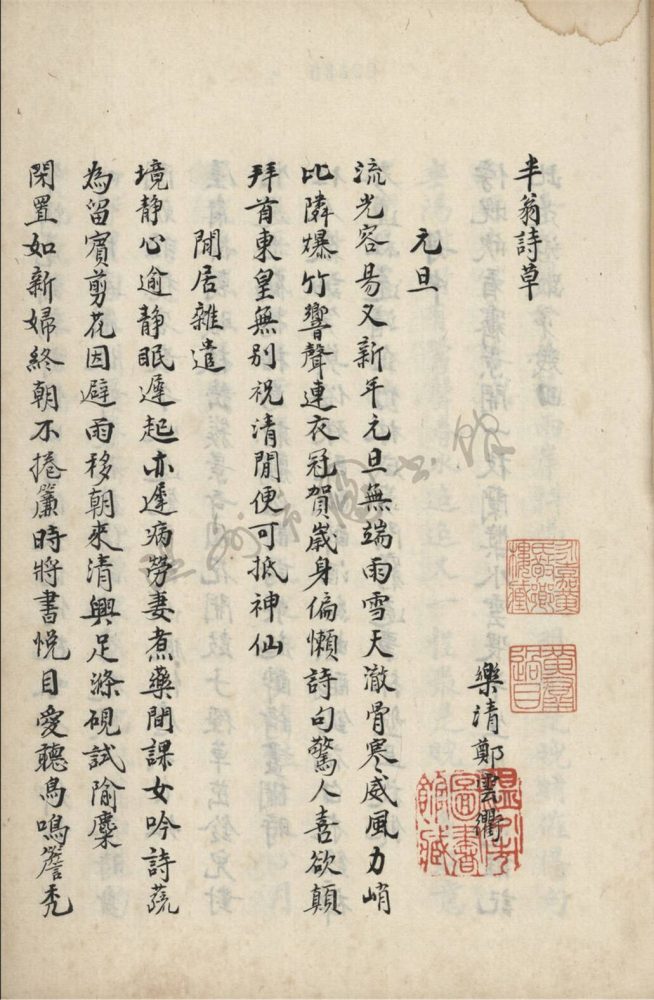 半翁詩草
樂清鄭雲衢
元旦
流光容易又新年元旦無端雨雪天澈骨寒威風力峭
比隣爆竹響聲連衣冠賀嵗身偏懶詩句驚人喜欲顛
拜首東皇無别祝清閒便可抵神仙
閒居雜遣
境静心逾静眠遲起亦遲病勞妻煮藥閒課女吟詩蔬
為留賓剪花因避雨移朝來清興足滌硯試隃麋
閑置如新婦終朝不捲簾時將書悦目愛聽鳥鳴簷秃
永嘉黃氏敬鄉樓藏
黃羣過目
温州市圖書館藏